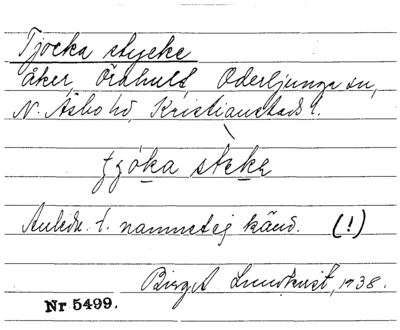 Tjocka stycke
åker, Örahult, Oderljunga sn,
N. Åsbo hd, Kristianstads l.
tjóka steke
Anledn. t. namnet ej känd. (!)
Birgit Lundkvist, 1938.
Nr 5499.